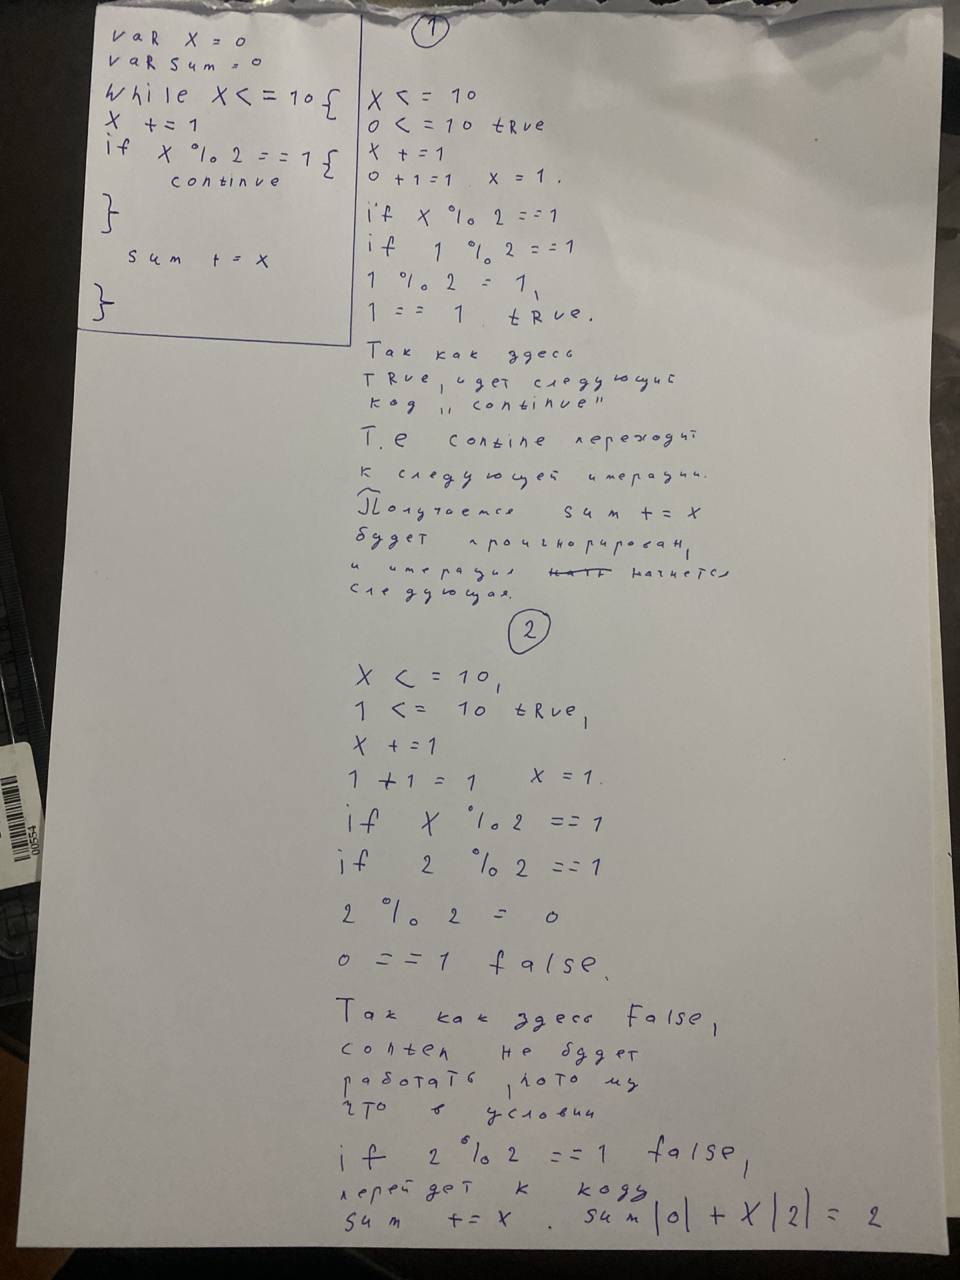 var x = 0
var sum = 0
while x <= 10 {
x += 1
if x % 2 == 1 {
continue
}
sum += x
}
1
x <= 10
0 <= 10 true
x += 1
0 + 1 = 1 x = 1.
if x % 2 == 1
if 1 % 2 == 1
1 % 2 = 1,
1 == 1 true.
Так как здесь
true, идет следующий
код „continue"
Т.е contine переходит
к следующей итерации.
Получается sum += x
будет проигнорирован,
и итерация начнется
следующая.
2
x <= 10,
1 <= 10 true,
x += 1
1 + 1 = 1 x = 1.
if x % 2 == 1
if 2 % 2 == 1
2 % 2 = 0
0 == 1 false.
Так как здесь False,
conten не будет
работать, пото му
что в услови
if 2 % 2 == 1 false,
перейдет к коду
sum += x . sum|0| + x|2| = 2
00554